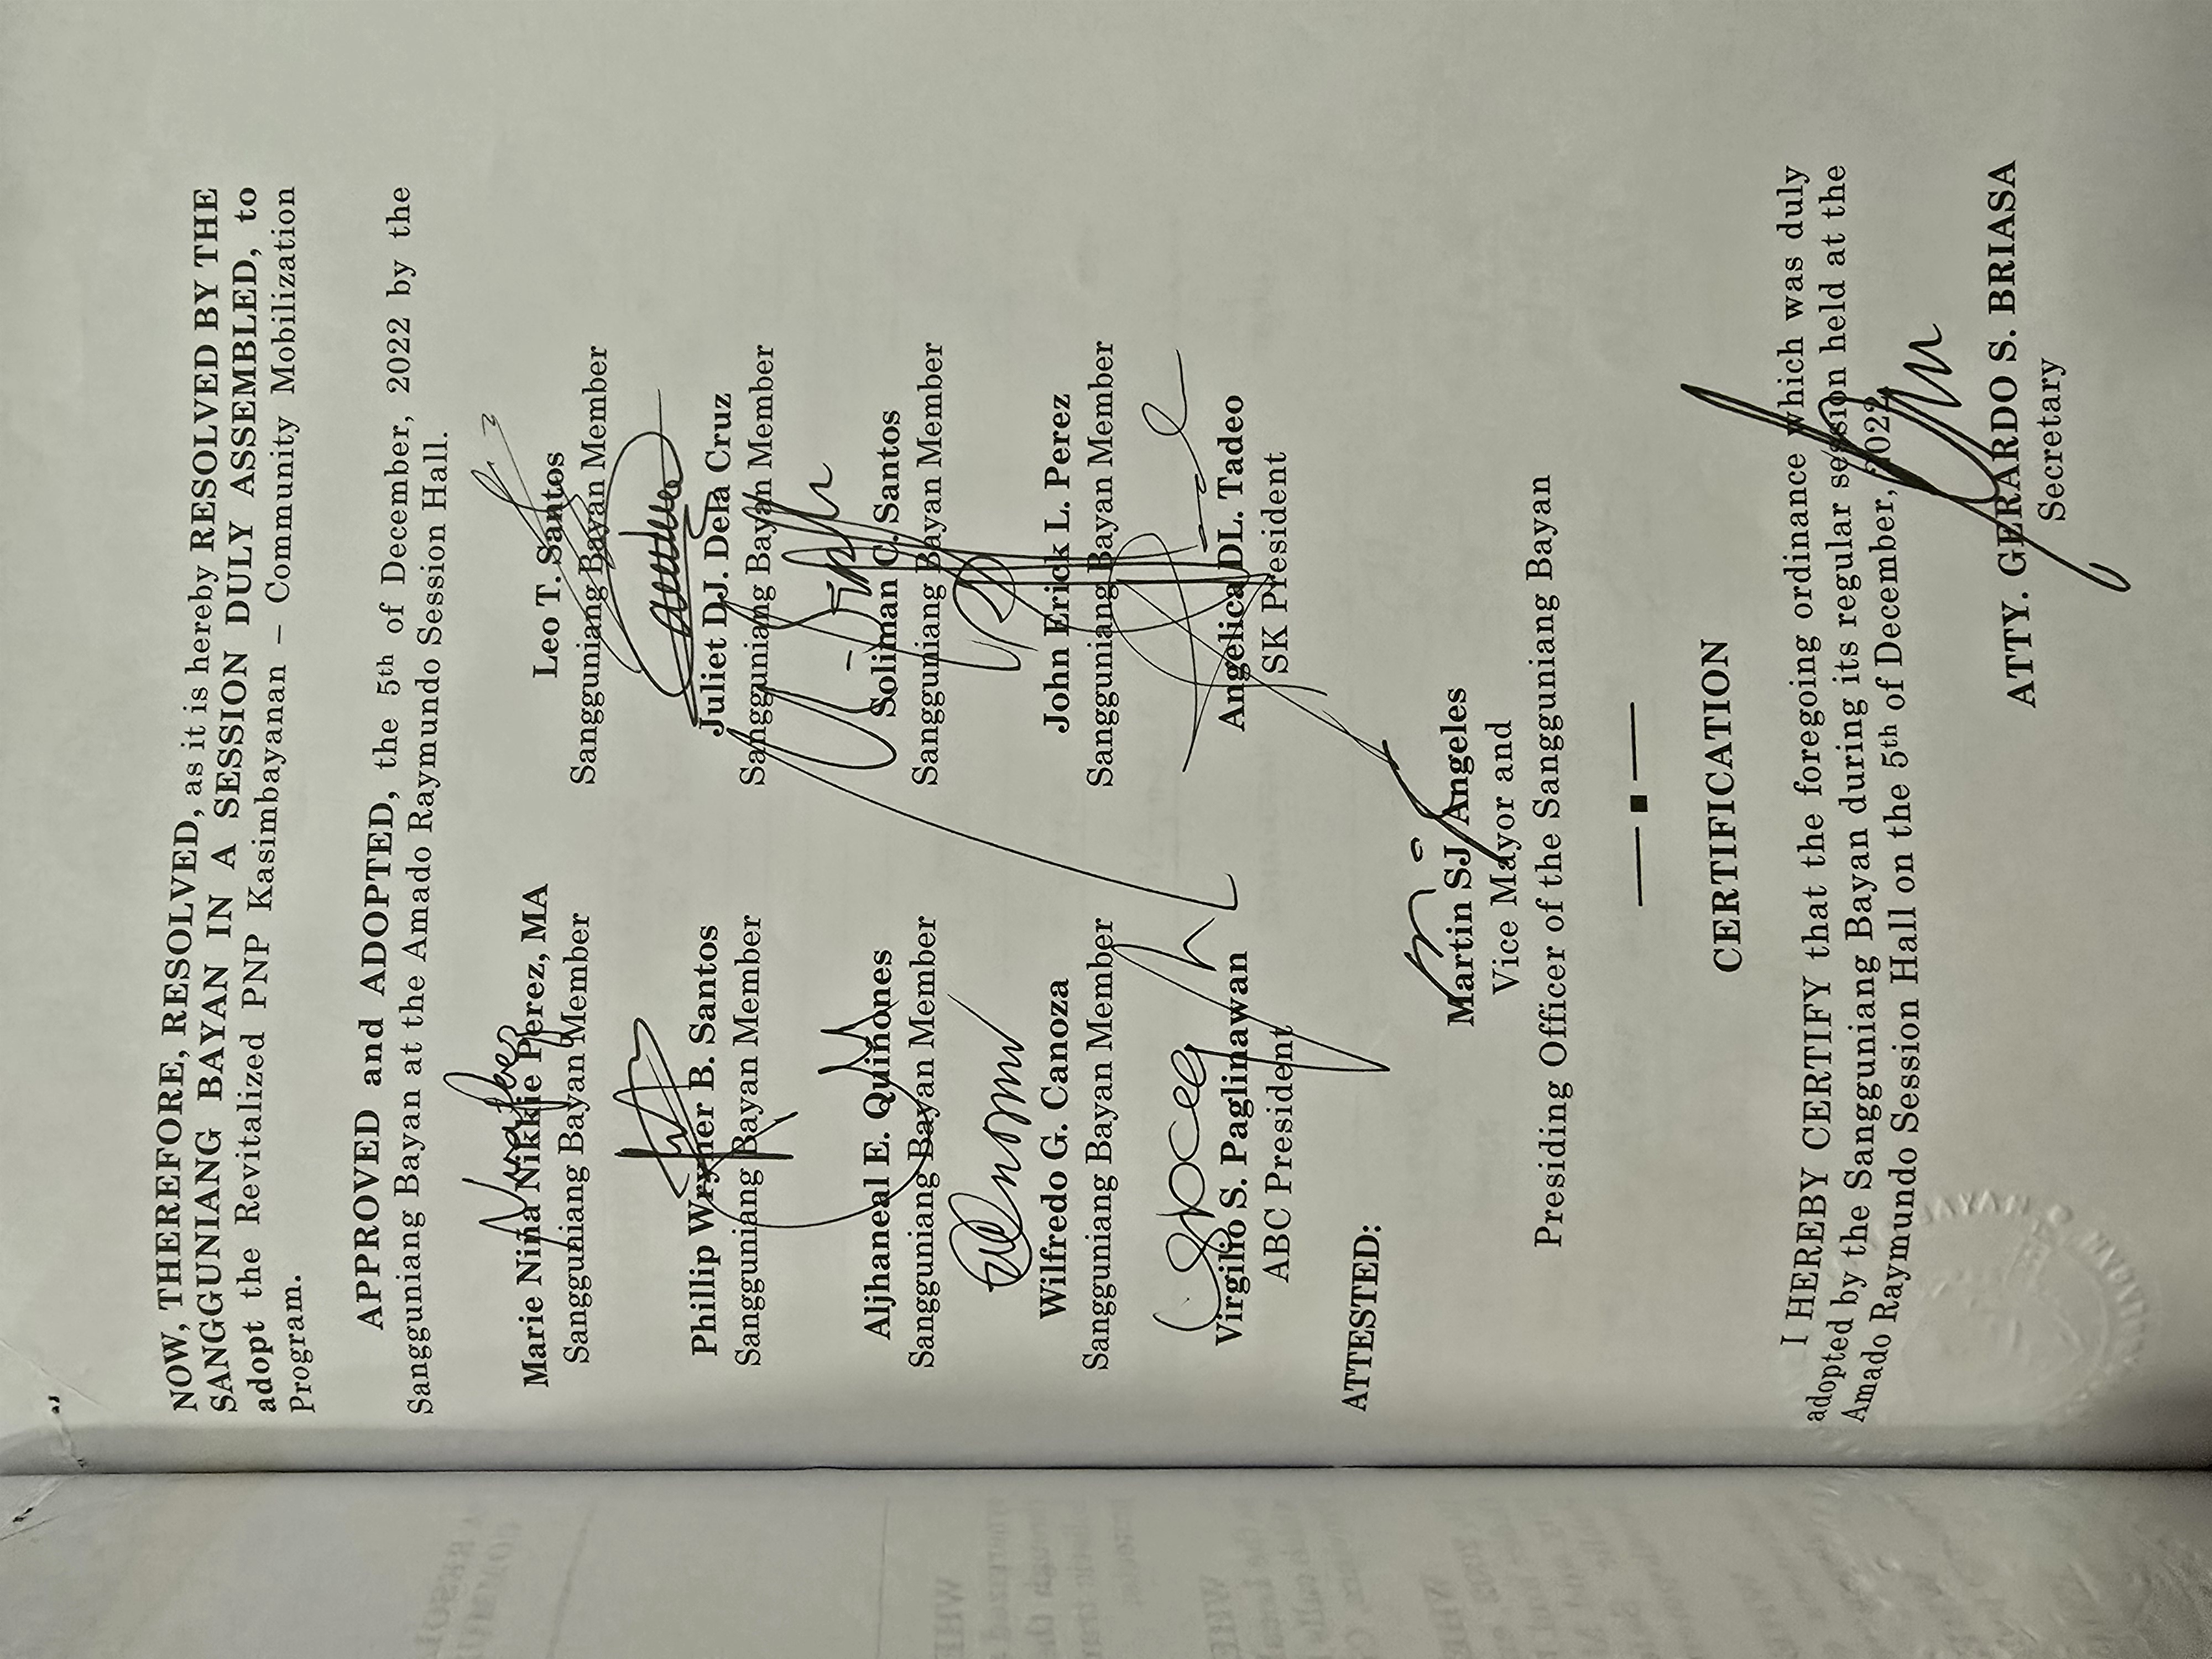 NOW, THEREFORE, RESOLVED, as it is hereby RESOLVED BY THE
SANGGUNIANG BAYAN IN A SESSION DULY ASSEMBLED, to
adopt the Revitalized PNP Kasimbayanan – Community Mobilization
Program.
APPROVED and ADOPTED, the 5th of December, 2022 by the
Sangguniang Bayan at the Amado Raymundo Session Hall.
Marie Niña Nikkie Perez, MA
Sangguniang Bayan Member
Leo T. Santos
Sangguniang Bayan Member
Phillip Wryner B. Santos
Sangguniang Bayan Member
Juliet DJ. Dela Cruz
Sangguniang Bayan Member
Aljhaneal E. Quiñones
Sangguniang Bayan Member
Soliman C. Santos
Sangguniang Bayan Member
Wilfredo G. Canoza
Sangguniang Bayan Member
John Erick L. Perez
Sangguniang Bayan Member
Virgilio S. Paglinawan
ABC President
Angelica DL. Tadeo
SK President
ATTESTED:
Martin SJ Angeles
Vice Mayor and
Presiding Officer of the Sangguniang Bayan
CERTIFICATION
I HEREBY CERTIFY that the foregoing ordinance which was duly
adopted by the Sangguniang Bayan during its regular session held at the
Amado Raymundo Session Hall on the 5th of December, 2022.
ATTY. GERARDO S. BRIASA
Secretary